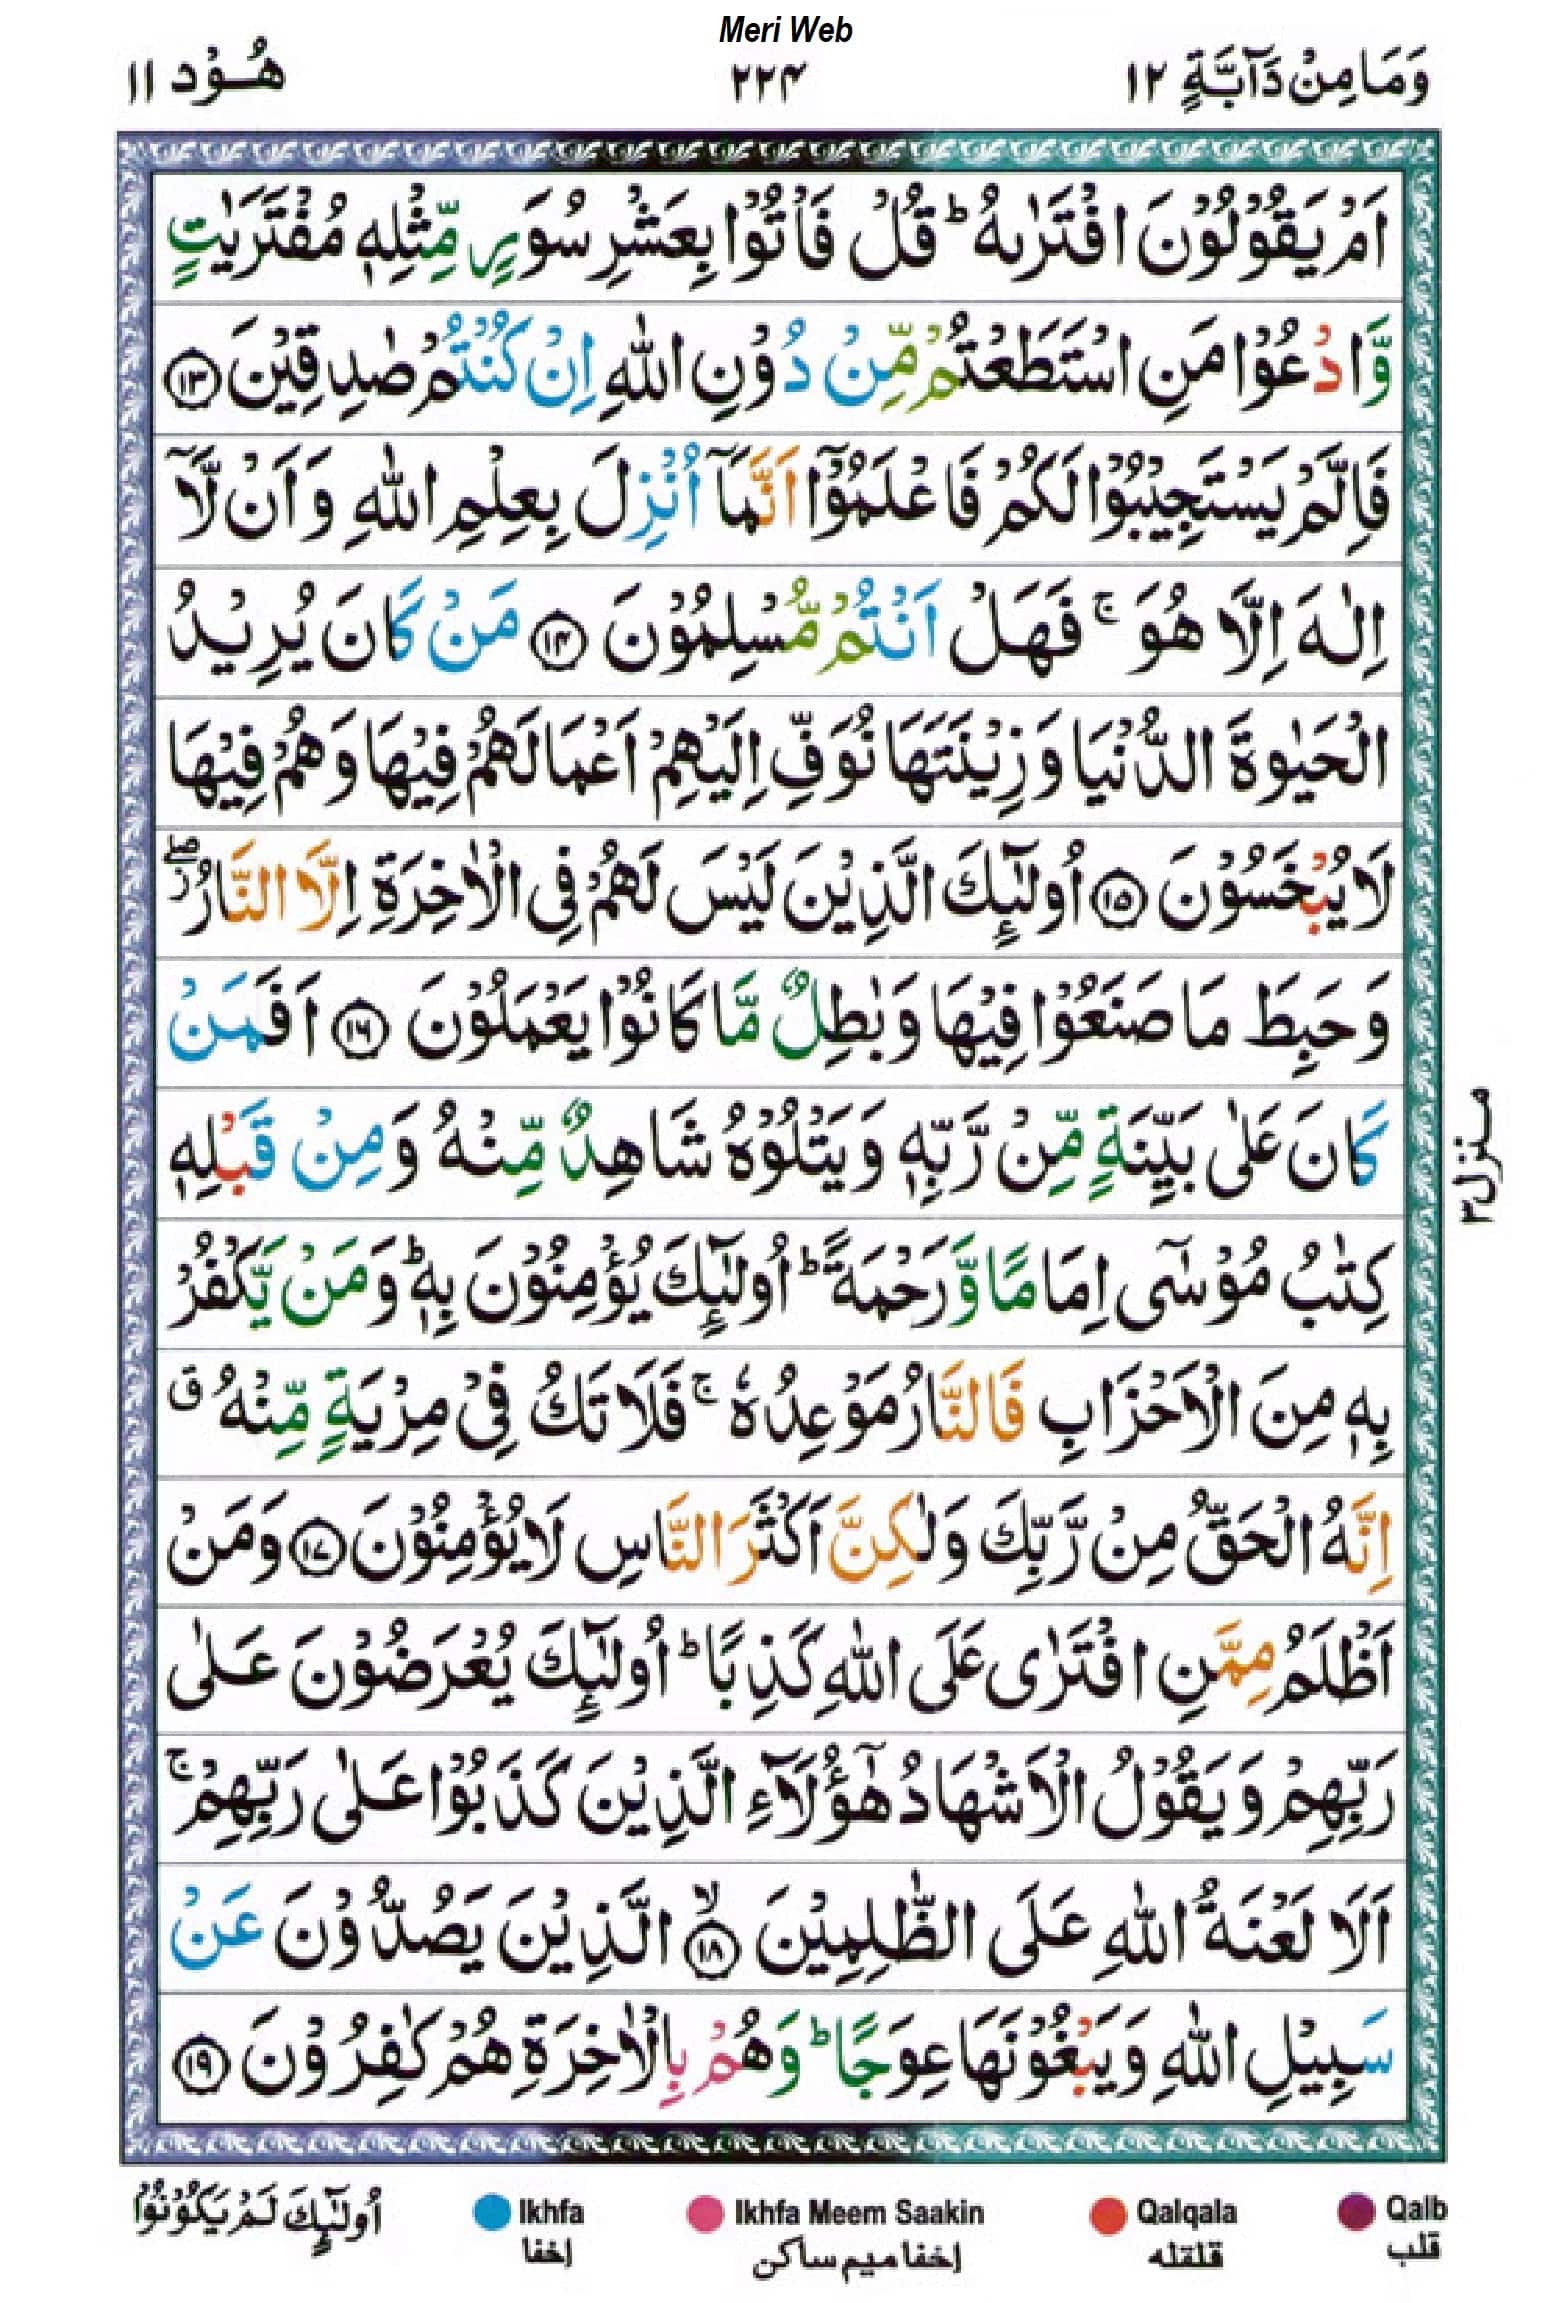 Meri Web
وَمَا مِنْ دَآبَّةٍ ١٢ ٢٢٤ هُوْد ١١
اَمْ يَقُوْلُوْنَ افْتَرٰىهُ ؕ قُلْ فَاْتُوْا بِعَشْرِ سُوَرٍ مِّثْلِهٖ مُفْتَرَيٰتٍ
وَّادْعُوْا مَنِ اسْتَطَعْتُمْ مِّنْ دُوْنِ اللّٰهِ اِنْ كُنْتُمْ صٰدِقِيْنَ ﴿١٣﴾
فَاِلَّمْ يَسْتَجِيْبُوْا لَكُمْ فَاعْلَمُوْۤا اَنَّمَاۤ اُنْزِلَ بِعِلْمِ اللّٰهِ وَاَنْ لَّاۤ
اِلٰهَ اِلَّا هُوَ ۚ فَهَلْ اَنْتُمْ مُّسْلِمُوْنَ ﴿١٤﴾ مَنْ كَانَ يُرِيْدُ
الْحَيٰوةَ الدُّنْيَا وَزِيْنَتَهَا نُوَفِّ اِلَيْهِمْ اَعْمَالَهُمْ فِيْهَا وَهُمْ فِيْهَا
لَا يُبْخَسُوْنَ ﴿١٥﴾ اُولٰٓئِكَ الَّذِيْنَ لَيْسَ لَهُمْ فِى الْاٰخِرَةِ اِلَّا النَّارُ ۖ
وَحَبِطَ مَا صَنَعُوْا فِيْهَا وَبٰطِلٌ مَّا كَانُوْا يَعْمَلُوْنَ ﴿١٦﴾ اَفَمَنْ
كَانَ عَلٰى بَيِّنَةٍ مِّنْ رَّبِّهٖ وَيَتْلُوْهُ شَاهِدٌ مِّنْهُ وَمِنْ قَبْلِهٖ
كِتٰبُ مُوْسٰٓى اِمَامًا وَّرَحْمَةً ؕ اُولٰٓئِكَ يُؤْمِنُوْنَ بِهٖ ؕ وَمَنْ يَّكْفُرْ
بِهٖ مِنَ الْاَحْزَابِ فَالنَّارُ مَوْعِدُهٗ ۚ فَلَا تَكُ فِىْ مِرْيَةٍ مِّنْهُ ق
اِنَّهُ الْحَقُّ مِنْ رَّبِّكَ وَلٰكِنَّ اَكْثَرَ النَّاسِ لَا يُؤْمِنُوْنَ ﴿١٧﴾ وَمَنْ
اَظْلَمُ مِمَّنِ افْتَرٰى عَلَى اللّٰهِ كَذِبًا ؕ اُولٰٓئِكَ يُعْرَضُوْنَ عَلٰى
رَبِّهِمْ وَيَقُوْلُ الْاَشْهَادُ هٰٓؤُلَآءِ الَّذِيْنَ كَذَبُوْا عَلٰى رَبِّهِمْ ۚ
اَلَا لَعْنَةُ اللّٰهِ عَلَى الظّٰلِمِيْنَ ۙ﴿١٨﴾ الَّذِيْنَ يَصُدُّوْنَ عَنْ
سَبِيْلِ اللّٰهِ وَيَبْغُوْنَهَا عِوَجًا ؕ وَهُمْ بِالْاٰخِرَةِ هُمْ كٰفِرُوْنَ ﴿١٩﴾
منزل ٣
اُولٰٓئِكَ لَمْ يَكُوْنُوْا
Ikhfa Ikhfa Meem Saakin Qalqala Qalb
إخفا إخفا ميم ساكن قلقله قلب